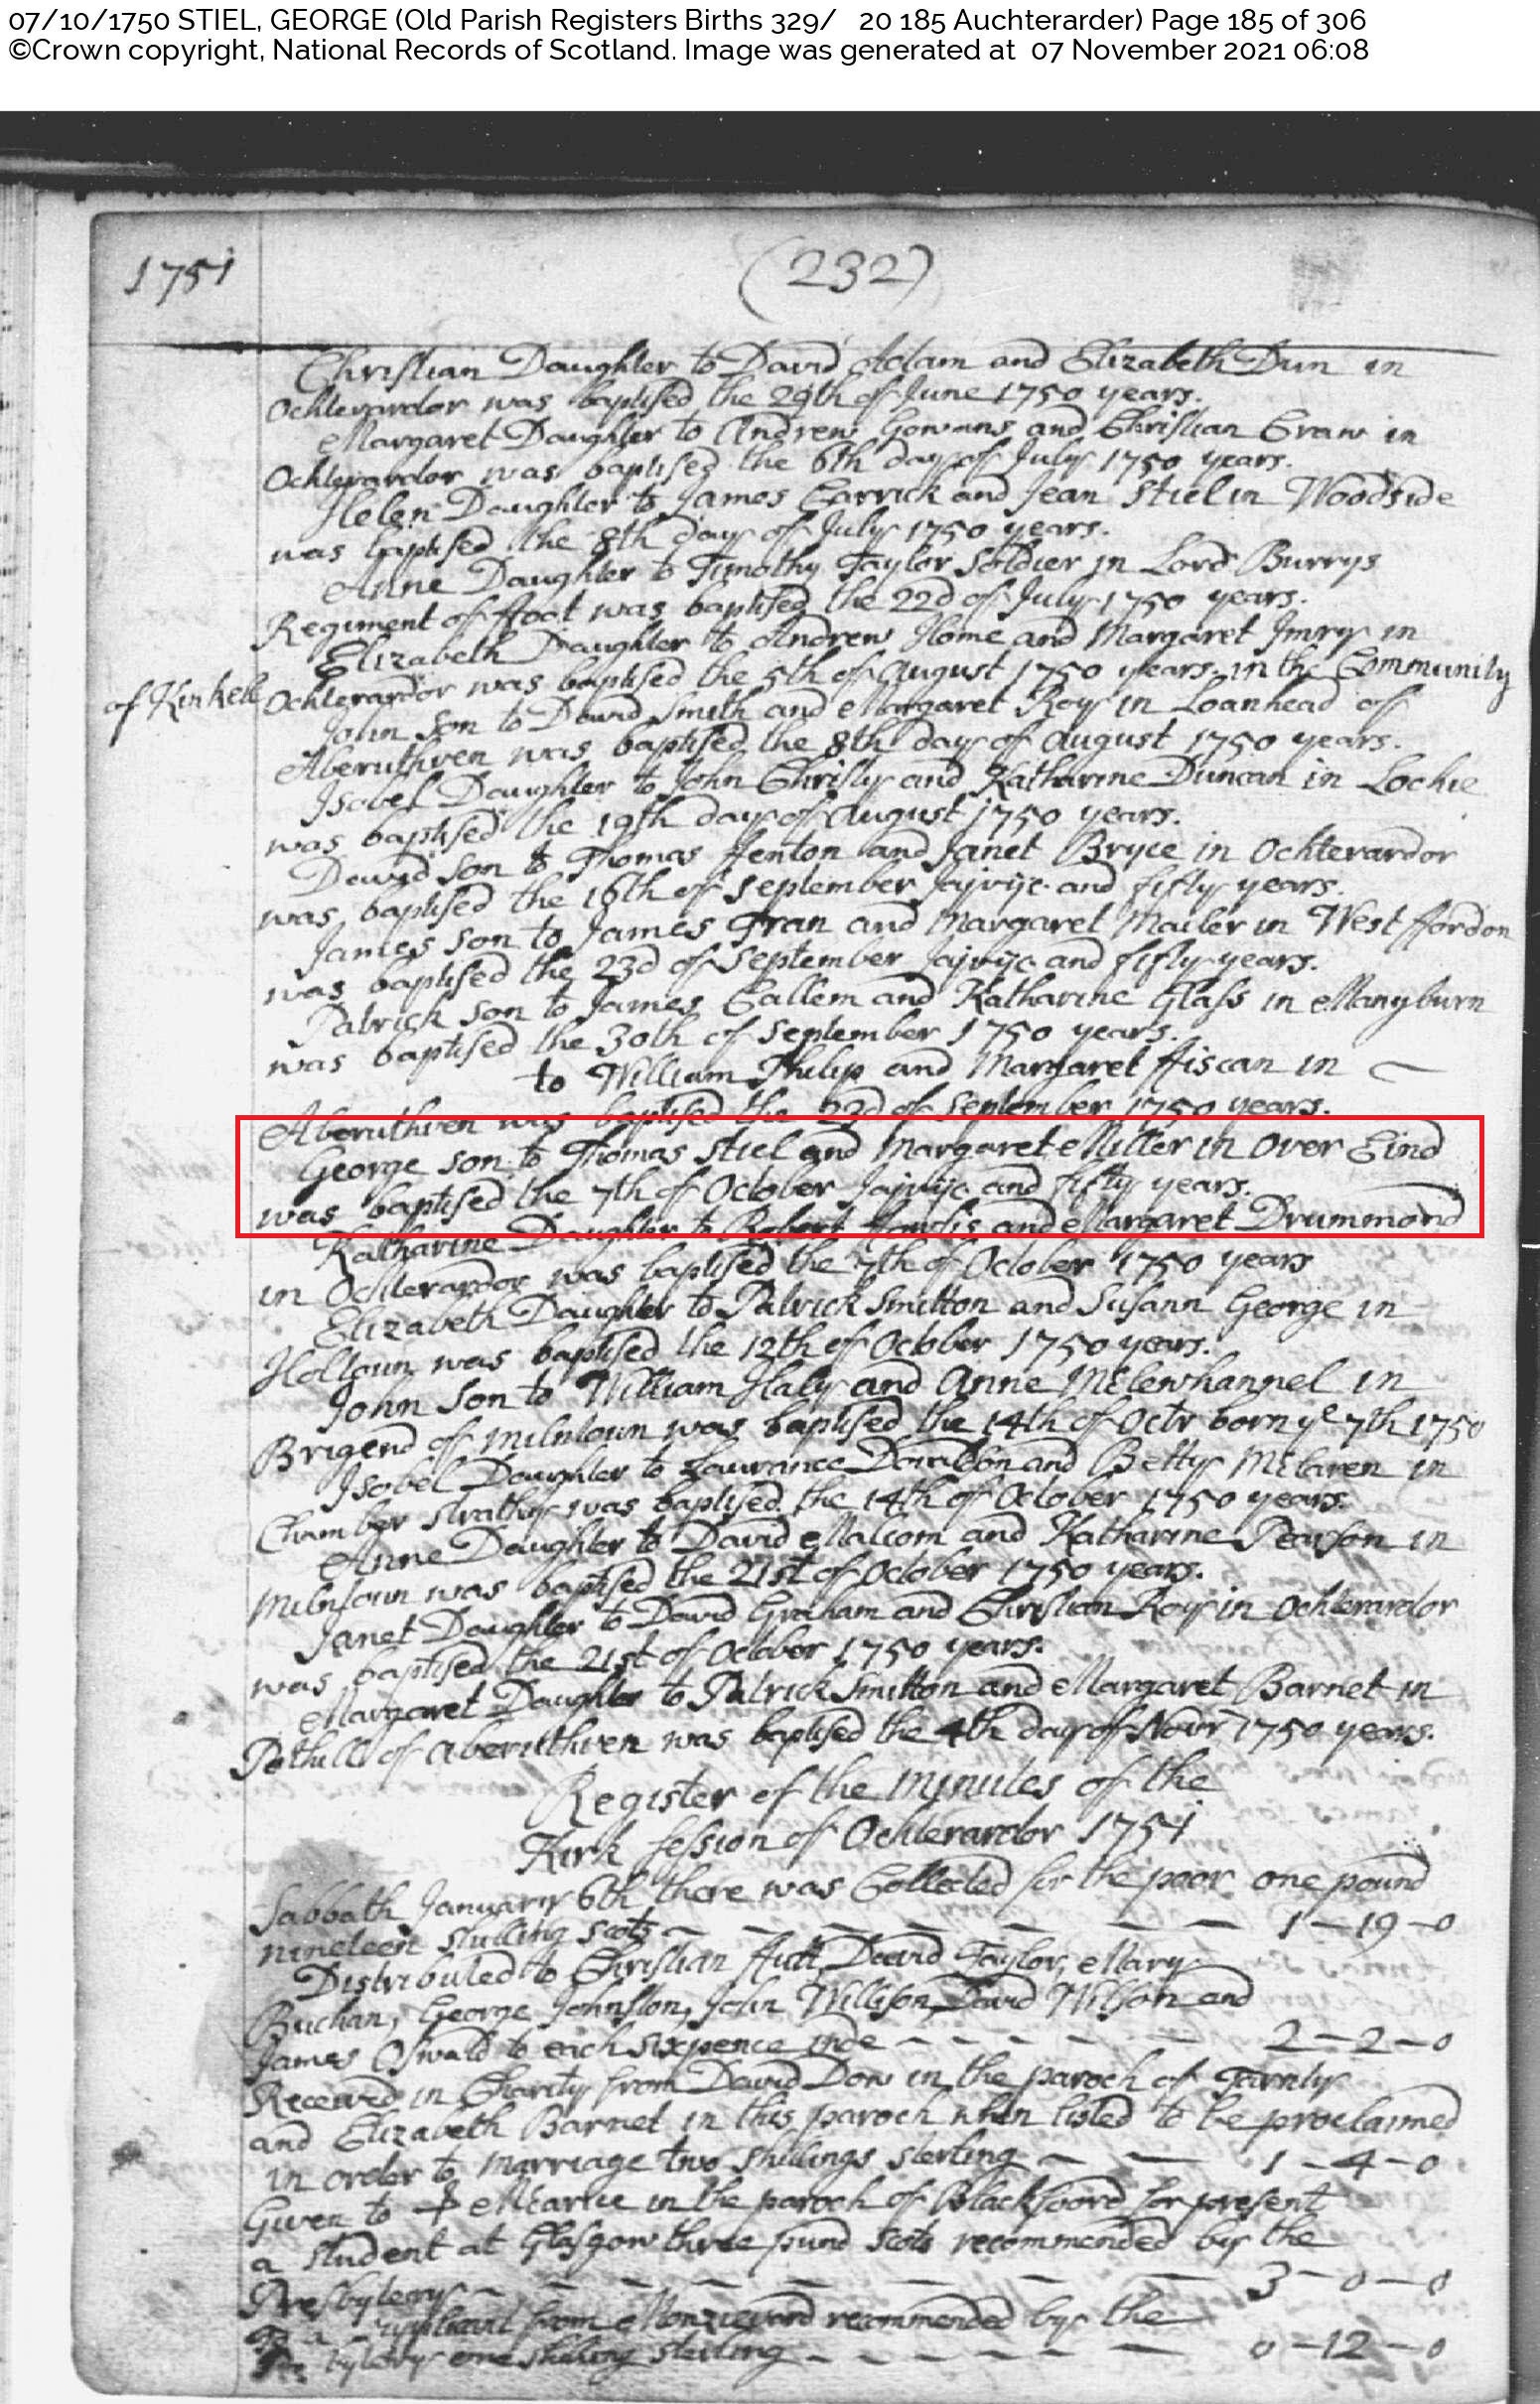 07/10/1750 STIEL, GEORGE (Old Parish Registers Births 329/ 20 185 Auchterarder) Page 185 of 306
©Crown copyright, National Records of Scotland. Image was generated at 07 November 2021 06:08
1751
(232)
Christian Daughter to David Adam and Elizabeth Dun in
Ochterardor was baptised the 29th of June 1750 years.
Margaret Daughter to Andrew Gowans and Christian Graw in
Ochterardor was baptised the 6th day of July 1750 years.
Helen Daughter to James Carrick and Jean Stiel in Woodside
was baptised the 8th day of July 1750 years.
Anne Daughter to Timothy Taylor Soldier in Lord Burrys
Regiment of ffoot was baptised the 22d of July 1750 years.
Elizabeth Daughter to Andrew Home and Margaret Imry in
Ochterardor was baptised the 5th of August 1750 years. in the Community
of Kinkell
John son to David Smith and Margaret Roy in Loanhead of
Aberuthven was baptised the 8th day of August 1750 years.
Isobel Daughter to John Christy and Katharine Duncan in Lochie
was baptised the 19th day of August 1750 years.
David son to Thomas ffenton and Janet Bryce in Ochterardor
was baptised the 16th of September Jajvijc and fifty years.
James son to James Fran and Margaret Mailer in West ffordon
was baptised the 23d of September Jajvijc and fifty years.
Patrick son to James Callem and Katharine Glass in Manyburn
was baptised the 30th of September 1750 years.
to William Philip and Margaret ffiscan in
Aberuthven was baptised the 23d of September 1750 years.
George son to Thomas Stiel and Margaret Miller in Over Cind
was baptised the 7th of October Jajvijc and fifty years.
Katharine Daughter to Robert and Margaret Drummond
in Ochterardor was baptised the 7th of October 1750 years
Elizabeth Daughter to Patrick Smitton and Susann George in
Holtoun was baptised the 12th of October 1750 years.
John Son to William Haly and Anne McLewhannel in
Brigend of Milntoun was baptised the 14th of Octr born ye 7th 1750
Isobel Daughter to Lawrance Davidson and Betty McLaren in
Chamber Strathy was baptised the 14th of October 1750 years.
Anne Daughter to David Malcom and Katharine Pearson in
Milntoun was baptised the 21st of October 1750 years.
Janet Daughter to David Graham and Christian Roy in Ochterardor
was baptised the 21st of October 1750 years.
Margaret Daughter to Patrick Smitton and Margaret Barnet in
Pothill of Aberuthven was baptised the 4th day of Novr 1750 years.
Register of the Minutes of the
Kirk Session of Ochterardor 1751
Sabbath January 6th there was Collected for the poor one pound
nineteen shilling scots 1-19-0
Distributed to Christian ffutt, David Taylor, Mary
Buchan, George Johnston, John Willison, David Wilson and
James Oswald to each sixpence inde 2-2-0
Received in Charity from David Dow in the paroch of
and Elizabeth Barnet in this paroch when listed to be proclaimed
in order to marriage two shillings sterling 1-4-0
Given to in the paroch of Blackfoord for present
a student at Glasgow three pund scots recommended by the
Presbytery 3-0-0
from Monzievard recommended by the
one shilling sterling 0-12-0